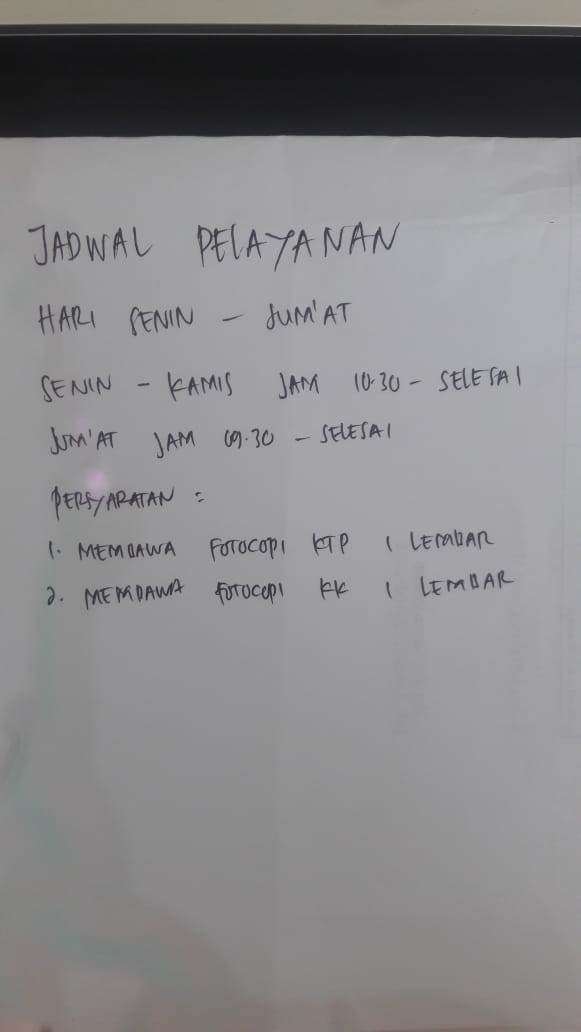 JADWAL PELAYANAN
HARI SENIN - JUM'AT
SENIN - KAMIS JAM 10.30 - SELESAI
JUM'AT JAM 09.30 - SELESAI
PERSYARATAN :
1. MEMBAWA FOTOCOPI KTP 1 LEMBAR
2. MEMBAWA FOTOCOPI KK 1 LEMBAR